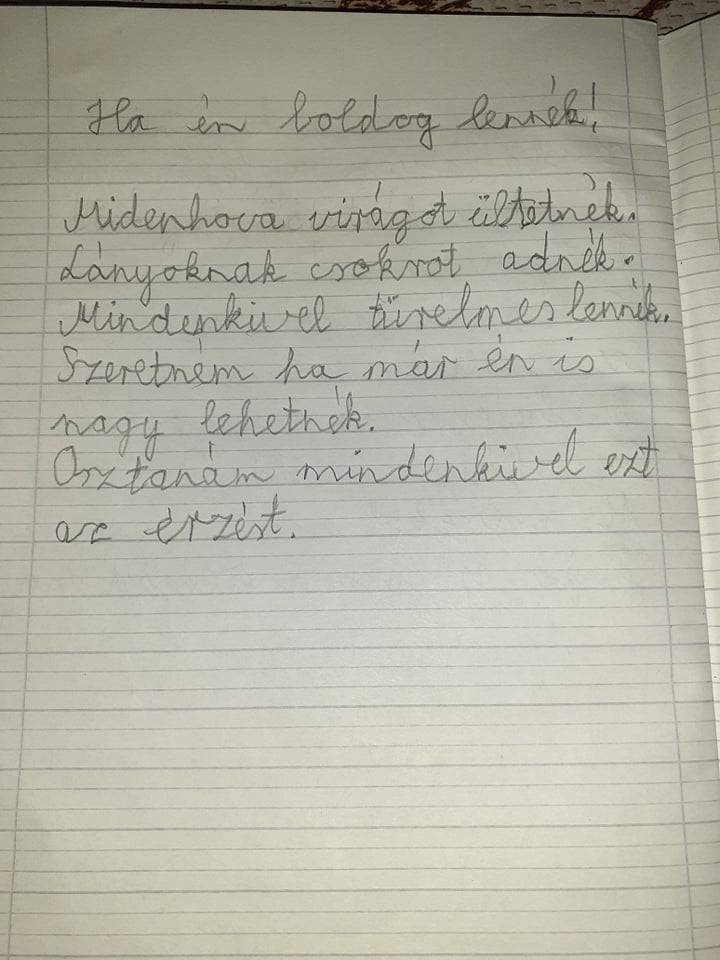 Ha én boldog lennék!
Midenhova virágot ültetnék.
Lányoknak csokrot adnék.
Mindenkivel türelmes lennék.
Szeretném ha már én is
nagy lehetnék.
Osztanám mindenkivel ezt
az érzést.